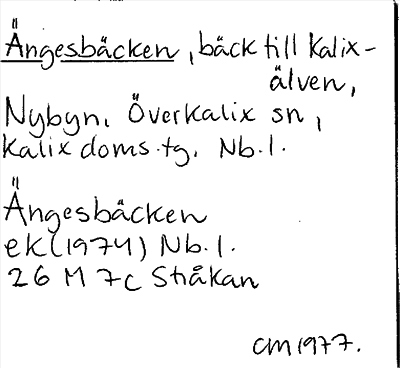 Ängesbäcken, bäck till Kalix-
älven,
Nybyn, Överkalix sn,
Kalix doms.tg. Nb.l.
Ängesbäcken
ek(1974) Nb.l.
26 M 7c Stråkan
CM1977.